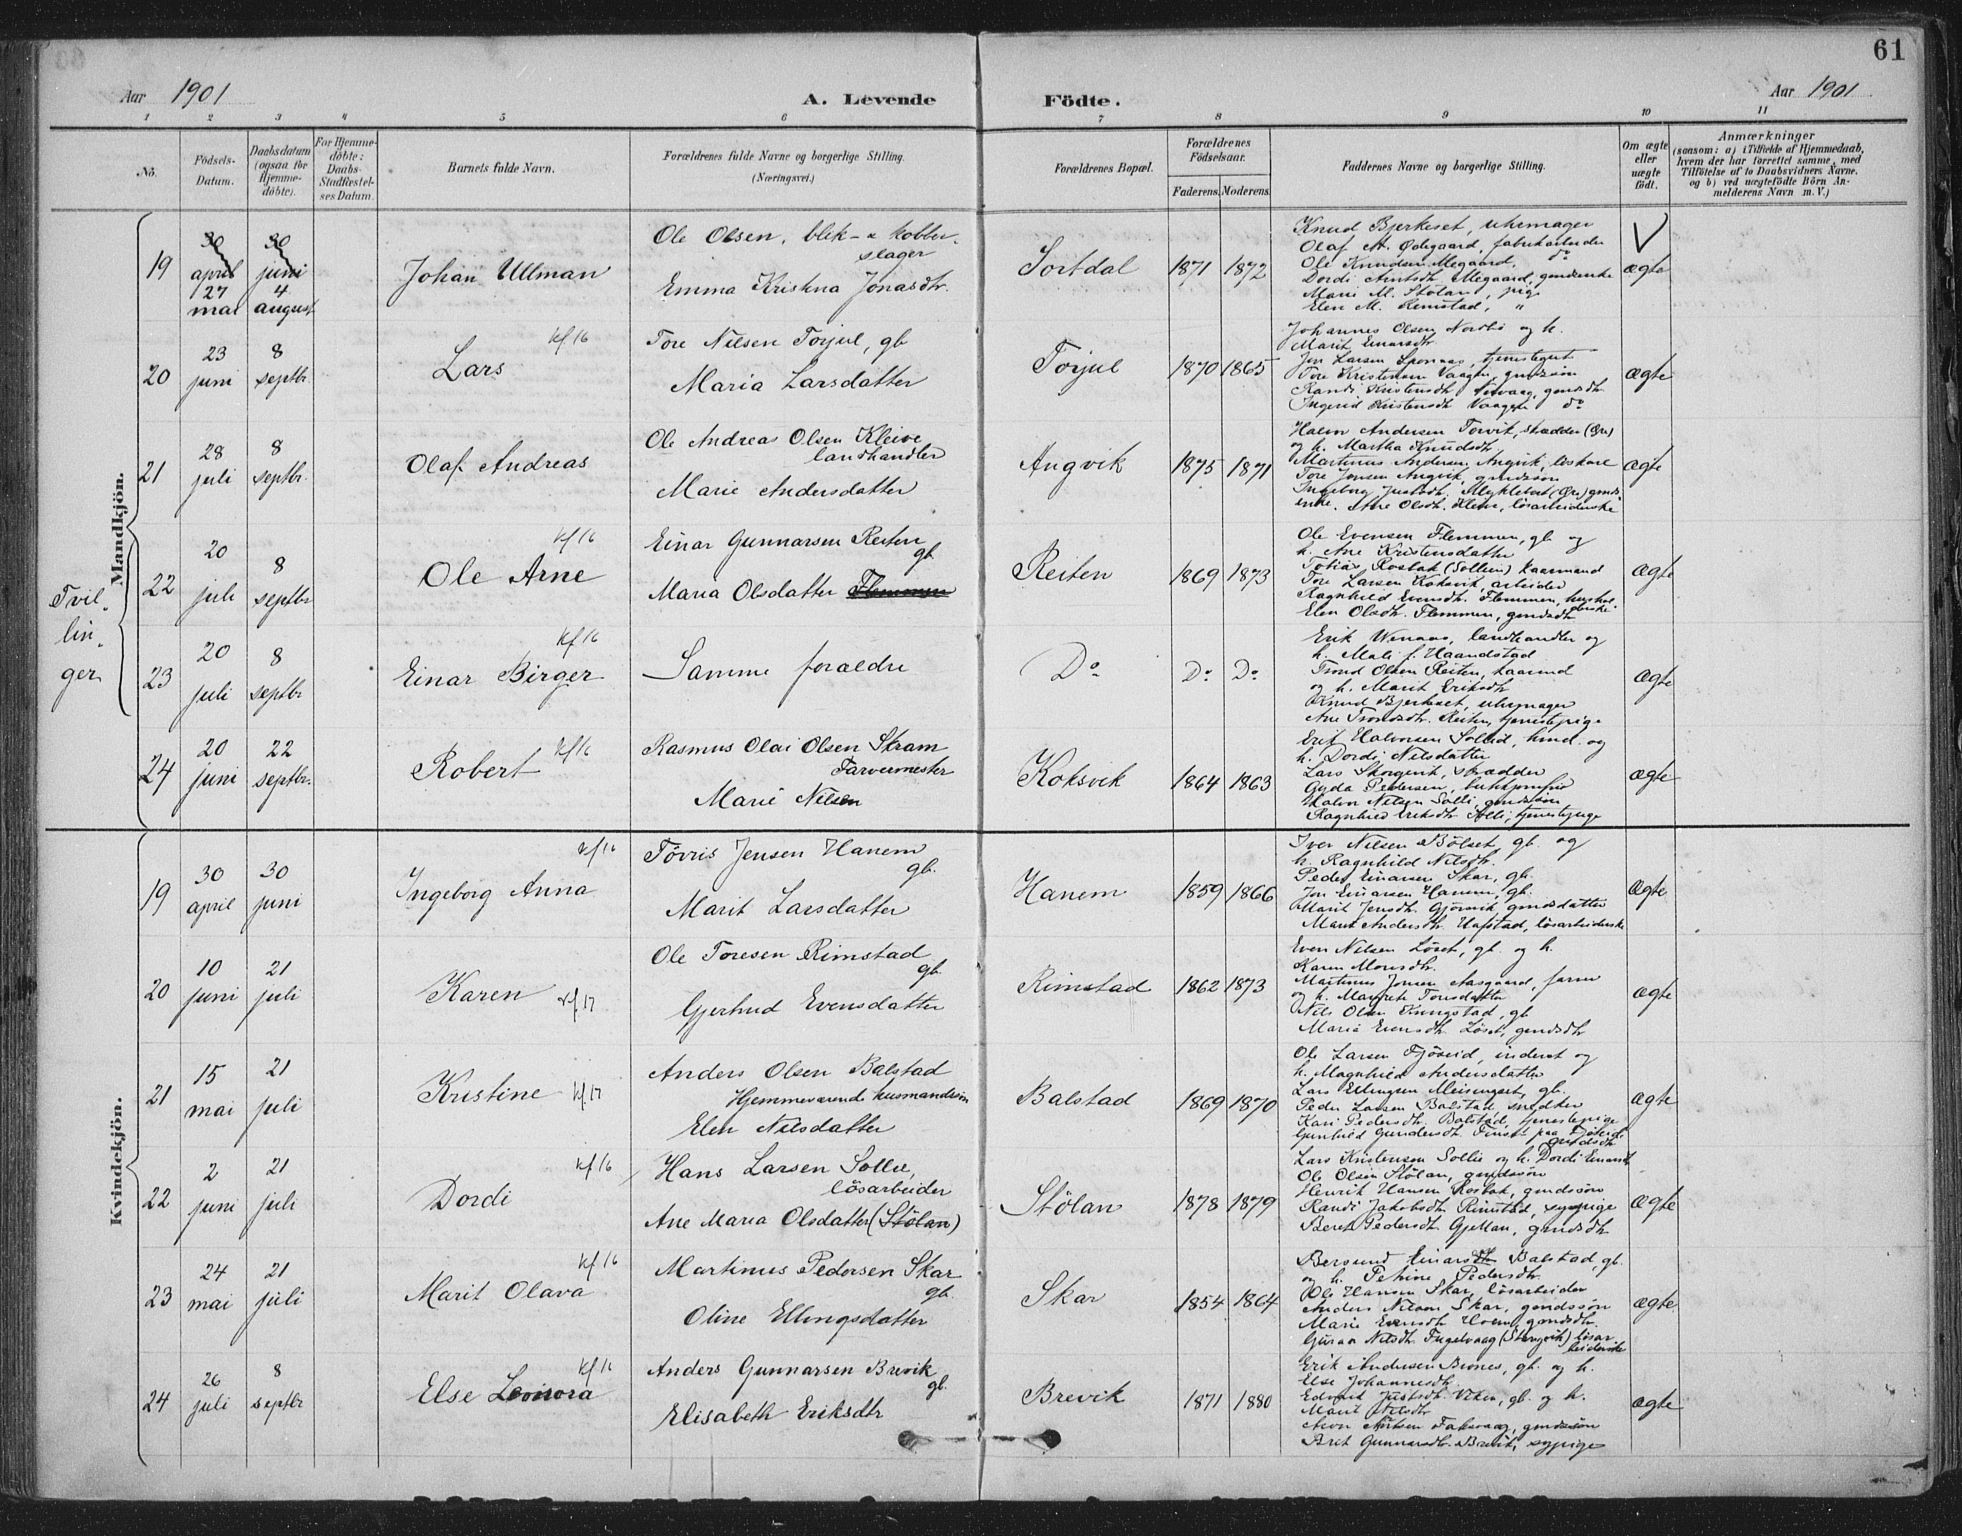 61
Aar 1901
A. Levende
Födte.
Aar 1901
1 2 3 4 5 6 7 8 9 10 11
No.
Födsels-Datum.
Daabsdatum (ogsaa for Hjemme-döbte).
For Hjemme-döbte: Daabs-Stadfæstel-ses Datum.
Barnets fulde Navn.
Forældrenes fulde Navne og borgerlige Stilling.
(Næringsvei.)
Forældrenes Bopæl.
Forældrenes Födselsaar.
Faderens. Moderens.
Faddernes Navne og borgerlige Stilling.
Om ægte eller uægte födt.
Anmærkninger
(saasom: a) i Tilfælde af Hjemmedaab,
hvem der har forrettet samme, med
Tilföielse af to Daabsvidners Navne,
og b) ved uægtefödte Börn An-
melderens Navn m. V.)
Mandkjön.
Tvil-
lin-
ger
19
30 april
27 mai
30 juni
4 august
Johan Ullman
Ole Olsen, blik- & kobber-
slager
Emma Kristina Jonasdtr.
Sortdal
1871 1872
Knud Bjerkeset, uhrmager
Olaf A. Ødegaard, fabrikarbeider
Ole Knudsen Megaard, do
Dordi Arntsdtr. Megaard, gmdsenke
Marie M. Stölan, pige
Elen M. Remstad, "
ægte
20
23 juni
8 septbr.
Lars
kf 16
Tore Nilsen Torjul, gb
Maria Larsdatter
Torjul
1870 1865
Johannes Olsen Nordbö og h.
Marit Einarsdtr.
Jon Larsen
Tore Kristensen Vaagen, gmdssön
Randi Kristensdtr. gmdsdtr.
Ingerid Kristensdtr. Vaagen do
ægte
21
28 juli
8 septbr.
Olaf Andreas
Ole Andreas Olsen Kleive
landhandler
Marie Andersdatter
Angvik
1875 1871
Halvor Andersen Torvik, skrædder (Öre)
og h. Martha Knudsdtr.
Martinus Andersen Angvik, löskare
Tore Jonsen Angvik, gmdssön
Ingeborg Justsdtr. Mykletöt (Öre) gmds-
enke. Ane Olsdtr. Kleive, lösarbeiderske
ægte
22
20 juli
8 septbr
Ole Arne
kf 16
Einar Gunnarsen Reiten
gb.
Maria Olsdatter Flemmen
Reiten
1869 1873
Ole Evensen Flemmen, gb. og
h. Ane Kristensdatter
Tobias Rostak (Sollien) kaarmand
Tore Larsen Koksvik, arbeider
Ragnhild Evensdtr. Flemmen, hushol-
derske.
Elen Olsdtr. Flemmen, gmdsdtr
ægte
23
20 juli
8 septbr
Einar Birger
kf 16
Samme foreldre
Do
Do Do
Erik Wenaas, landhandler og
h. Mali f. Haandstad
Trond Olsen Reiten, kaarmd
og h. Marit Eriksdtr
Knud Bjerkeset, uhrmager
Ane Trondsdtr. Reiten, tjenestepige
ægte
24
20 juni
22 septbr.
Robert
kf 16
Rasmus Olai Olsen Skram
Farvermester
Marie Nilsen
Koksvik
1864 1863
Erik Halvorsen Sollid, hmd. og
h. Dordi Nilsdatter
Lars Skorgevik, skrædder
Gyda Pedersen, butikjomfru
Halvor Nilsen Solli, gmdssön
Ragnhild Eriksdtr. Solli, tjenestepige
ægte
Kvindekjön.
19
30 april
30 juni
Ingeborg Anna
kf 16
Tövris Jensen Hanem
gb.
Marit Larsdatter
Hanem
1859 1866
Iver Nilsen Bölset, gb. og
h. Ragnhild Nilsdtr.
Peder Einarsen Skar, gb.
Jon Einarsen Hanem, gb.
Marit Jensdtr. Gjörvik gmdsdatter
Marit Andersdtr. Hafstad, lösarbeiderske
ægte
20
10 juni
21 juli
Karen
kf. 17
Ole Toresen Rimstad
gb.
Gjertrud Evensdatter
Rimstad
1862 1873
Even Nilsen Löset, gb. og h.
Karen Monsdtr.
Martinus Jonsen Aasgaard, form
og h. Margrete Toresdatter
Nils Olsen Kringstad, gb
Maria Evensdtr. Löset, gmdsdtr
ægte
21
15 mai
21 juli
Kristine
kf. 17
Anders Olsen Balstad
Hjemmeværende husmandssön
Elen Nilsdatter
Balstad
1869 1870
Ole Larsen Tjöseid, inderst og
h. Magnhild Andersdatter
Lars Ellingsen Meisingset, gb.
Peder Larsen Balstad, snedker
Kari Pedersdtr. Balstad, tjenestepige
Gunhild Gundersdtr.
gmdsdtr
ægte
22
2 juni
21 juli
Dordi
kf 16
Hans Larsen Sollie,
lösarbeider
Ane Maria Olsdatter (Stölan)
Stölan
1878 1879
Lars Kristensen Sollie og h. Dordi Einarsdtr.
Ole Olsen Stölan, gmdssön
Henrik Hansen Rostak, gmdssön
Randi Jakobsdtr. Rimstad, sypige
Beret Pedersdtr. Gjellan, gmdsdtr
ægte
23
24 mai
21 juli
Marit Olava
kf 16
Martinus Pedersen Skar
gb.
Oline Ellingsdatter
Skar
1854 1864
Bersvend Einarsdtr Balstad, gb.
og h. Petrine Pedersdtr.
Ole Hansen Skar, lösarbeider
Anders Nilsen Skar, gmdssön
Marie Evensdtr. Hoem, gmdsdtr.
Guran Nilsdtr. Fugelvaag (Stangvik) lösar-
beiderske
ægte
24
26 juli
8 septbr
Else Leonora
kf 16
Anders Gunnarsen Brevik
gb.
Elisabeth Eriksdtr
Brevik
1871 1880
Erik Andersen Brones, gb. og h.
Else Johannesdtr.
Edvard Justsdtr. Viken, gb. og h.
Marit Nilsdtr
Aron Antsen Fakvaag, gmdssön
Brit Gunnarsdtr. Brevik, sypige
ægte